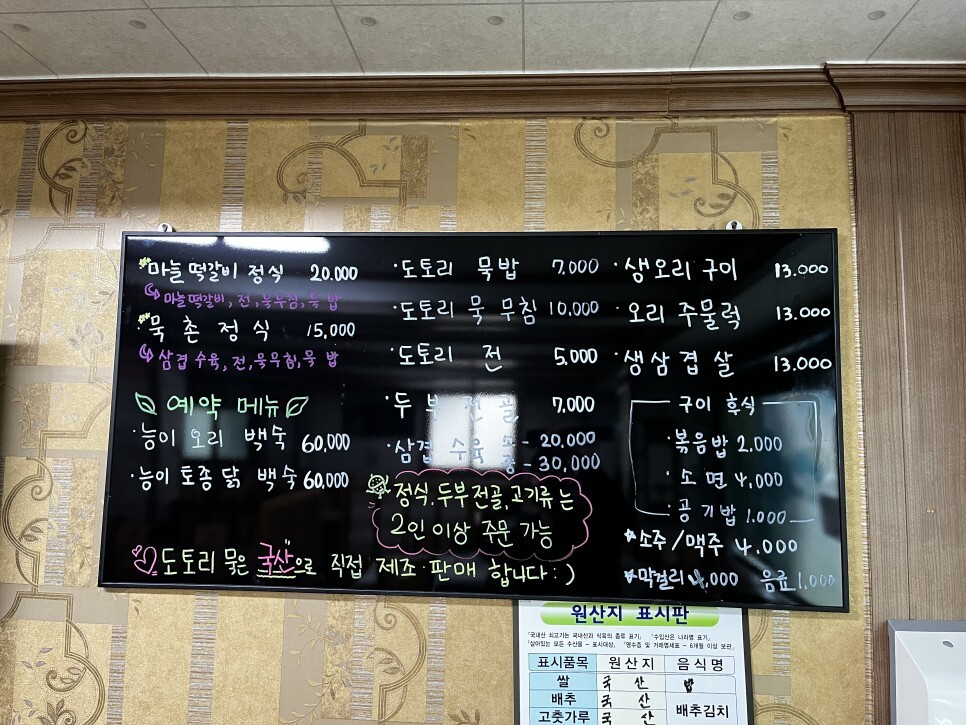 마늘 떡갈비 정식 20.000
마늘떡갈비, 전, 묵무침, 묵 밥
묵 촌 정 식 15,000
삼겹 수육, 전, 묵무침, 묵 밥
예약 메뉴
·능이 오리 백숙 60,000
·능이 토종 닭 백숙 60,000
·도토리 묵밥 7,000
·도토리 묵 무침 10,000
·도토리 전 5,000
·두 부 전 골 7,000
·삼겹 수육 소 - 20,000
중 - 30,000
정식, 두부전골, 고기류 는
2인 이상 주문 가능
·생오리 구이 13.000
·오리 주물럭 13.000
·생삼겹살 13.000
구이 후식
·볶음밥 2.000
·소 면 4,000
·공기밥 1.000
소주/맥주 4.000
막걸리 ,000 음료 1.000
도토리 묵은 국산으로 직접 제조·판매 합니다:)
원산지 표시판
「국내산 쇠고기는 국내산과 식육의 종류 표기」 「수입산은 나라명 표기」
「살아있는 모든 수산물 - 표시대상」 「영수증 및 거래명세표 - 6개월 이상 보관」
표시품목 원산지 음식명
쌀 국 산 밥
배추 국 산 배추김치
고춧가루 국 산